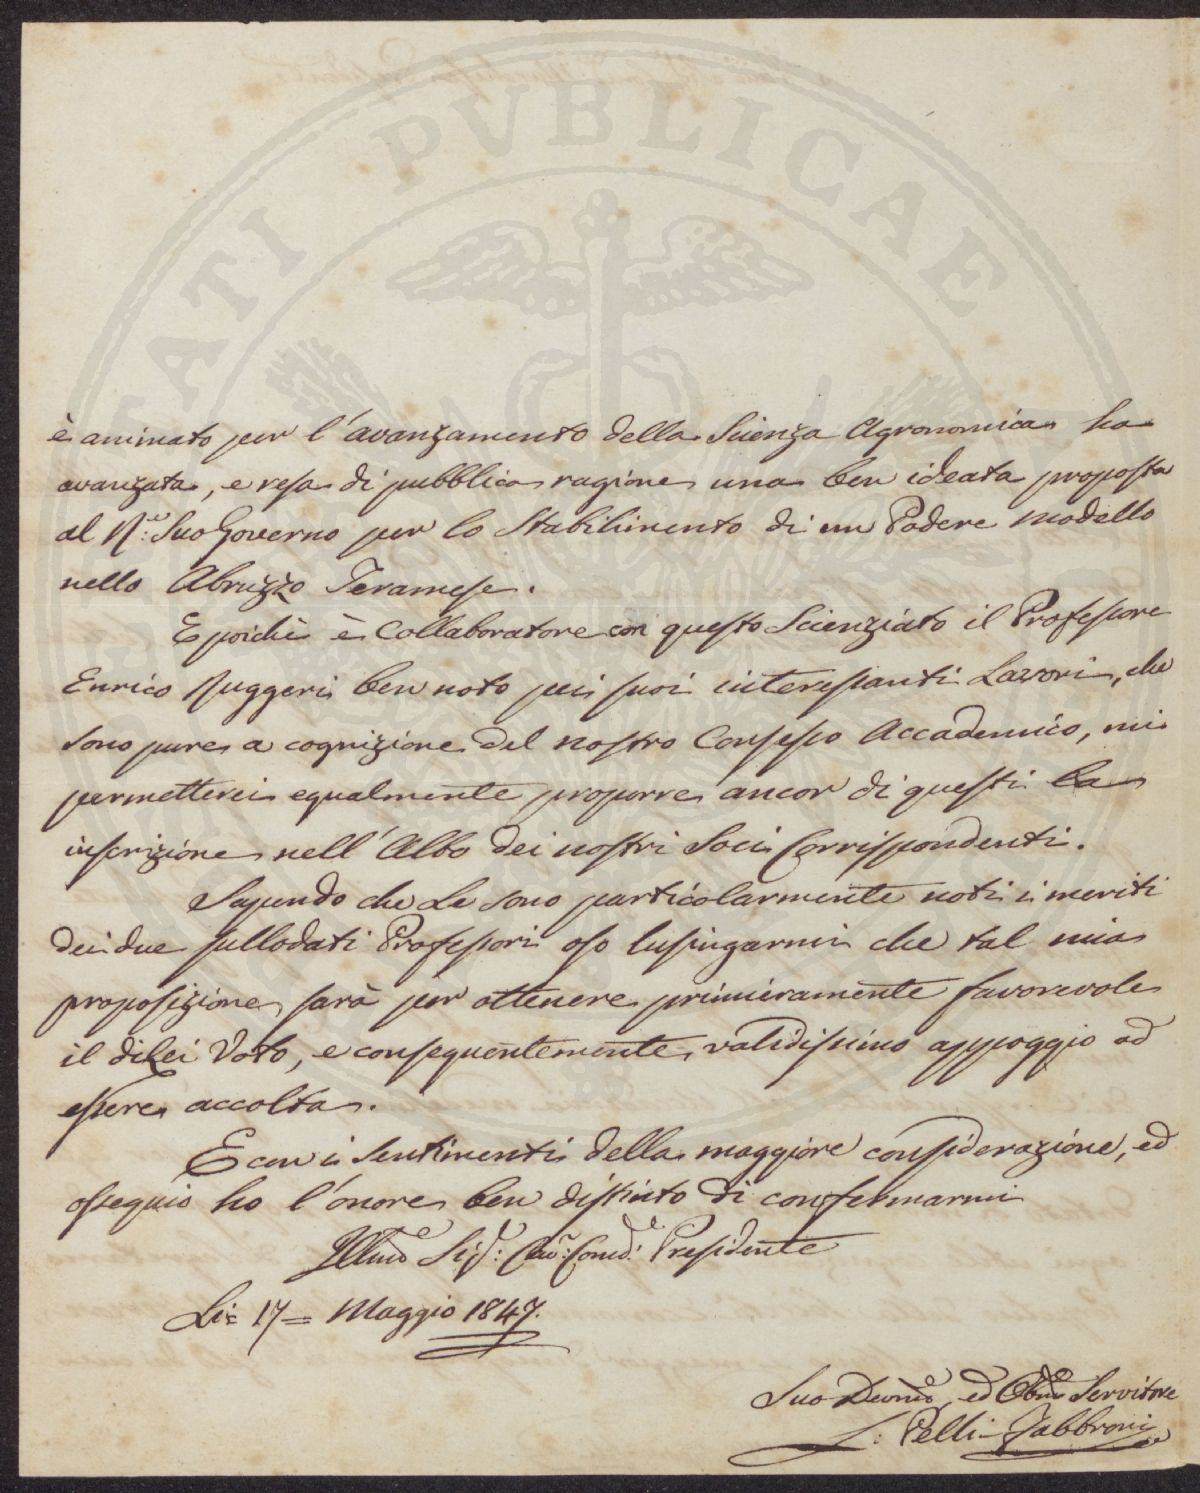 PROSPERITATI PUBLICAE
è animato per l'avanzamento della Scienza Agronomica ha
avanzata, e resa di pubblica ragione una ben ideata proposta
al R.e Suo Governo per lo Stabilimento di un Podere modello
nello Abruzzo Teramese.
E poichè è Collaboratore con questo Scienziato il Professore
Enrico Ruggeri ben noto pei suoi interessanti Lavori, che
sono pure a cognizione del nostro Consesso Accademico, mi
permetterei egualmente proporre ancor di questi la
inscrizione nell'Albo dei nostri Soci Corrispondenti.
Sapendo che Le sono particolarmente noti i meriti
dei due sullodati Professori oso lusingarmi che tal mia
proposizione sarà per ottenere primieramente favorevole
il dilei Voto, e conseguentemente validissimo appoggio ad
essere accolta.
E con i sentimenti della maggiore considerazione, ed
ossequio ho l'onore ben distinto di confermarmi
Illmo Sig.e: Cav.e: Comd.e: Presidente
Li: 17= Maggio 1847.
Suo Devmo, ed Obmo Servitore
L: Pelli-Fabbroni